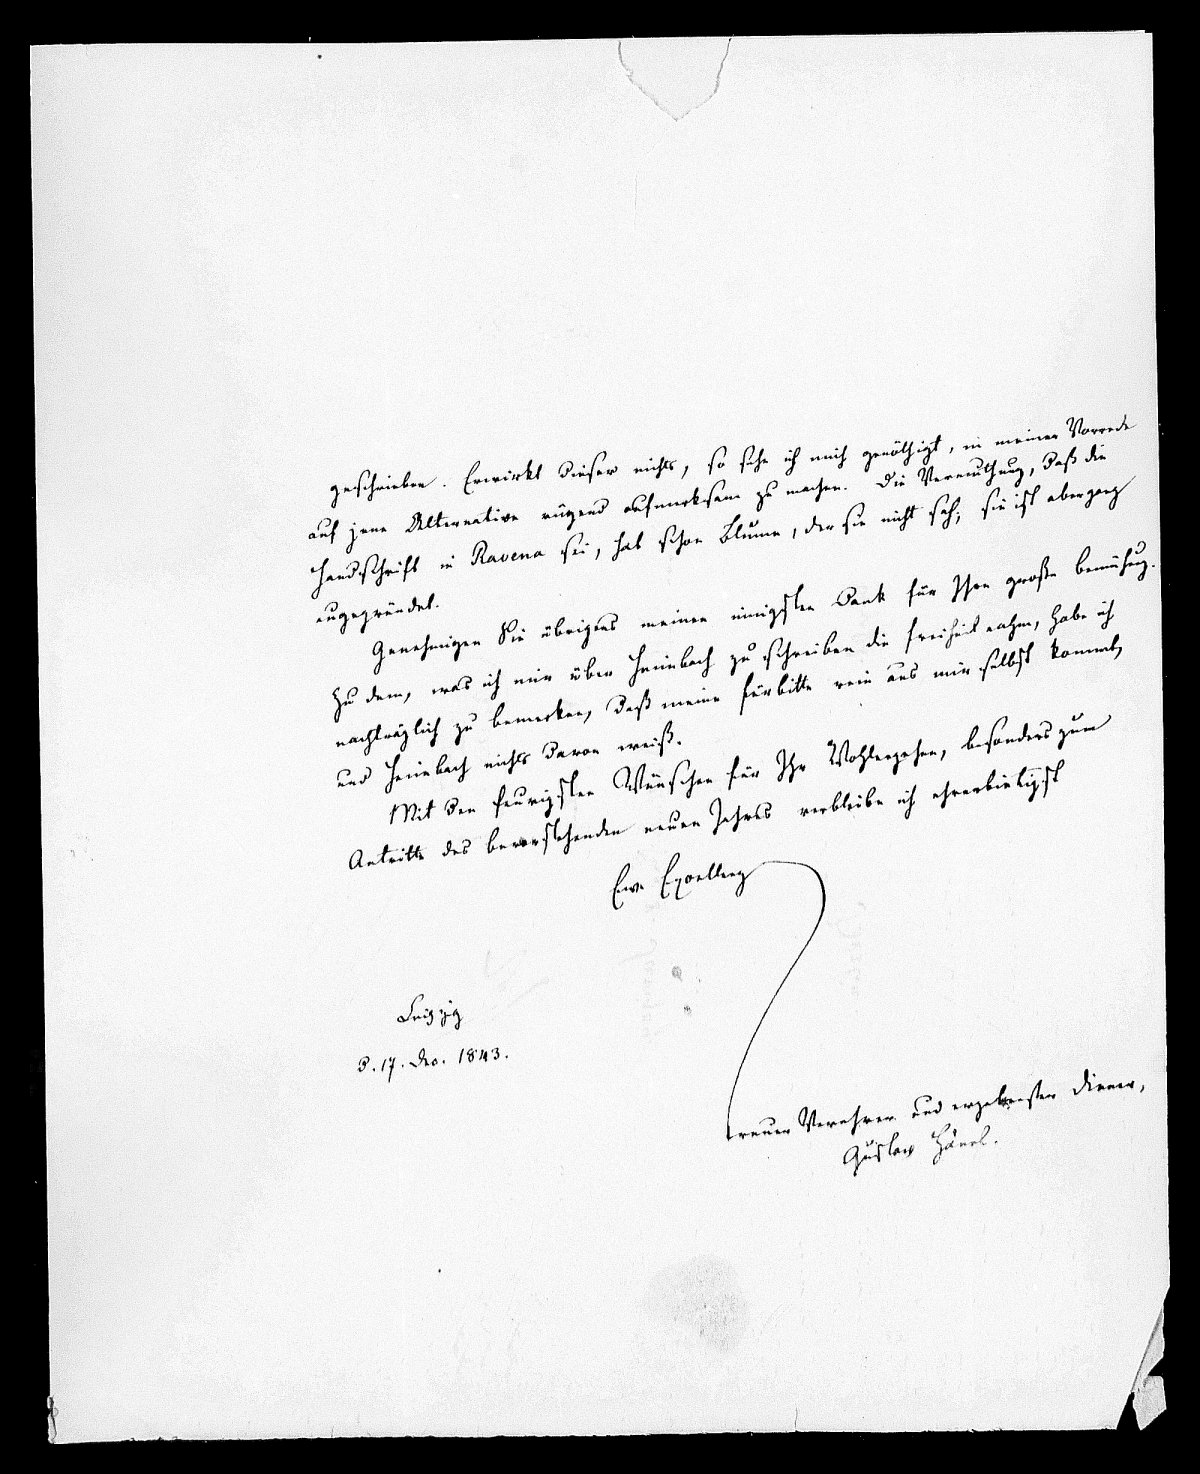 geschrieben. Erwirkt dieser nichts, so sehe ich mich genöthigt, in meiner Vorrede
auf jene Alternative rügend aufmerksam zu machen. Die Vermuthung, daß die
Handschrift in Ravena sei, hat schon Blume, der sie nicht sah; sie ist aber ganz
ungegründet.
Genehmigen Sie übrigens meinen innigsten Dank für Ihre große Bemühung.
Zu dem, was ich mir über Heimbach zu schreiben die Freiheit nahm, habe ich
nachträglich zu bemerken, daß meine Fürbitte rein aus mir selbst kommt,
und Heimbach nichts davon weiß.
Mit den feurigsten Wünschen für Ihr Wohlergehen, besonders zum
Antritte des bevorstehenden neuen Jahres verbleibe ich ehrerbietigst
Ew. Excellenz
Leipzig
d. 17. Dec. 1843.
treuer Verehrer und ergebenster Diener,
Gustav Hänel.